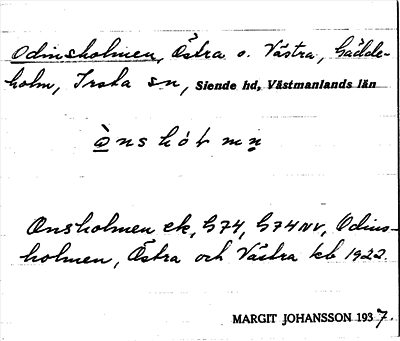 Odinsholmen, Östra o. Västra, Gädde-
holm, Irsta sn, Siende hd, Västmanlands län
ò̲nshóɫmn̥
Onsholmen ek, G74, G74NV, Odins-
holmen, Östra och Västra kb 1922.
MARGIT JOHANSSON 1937.